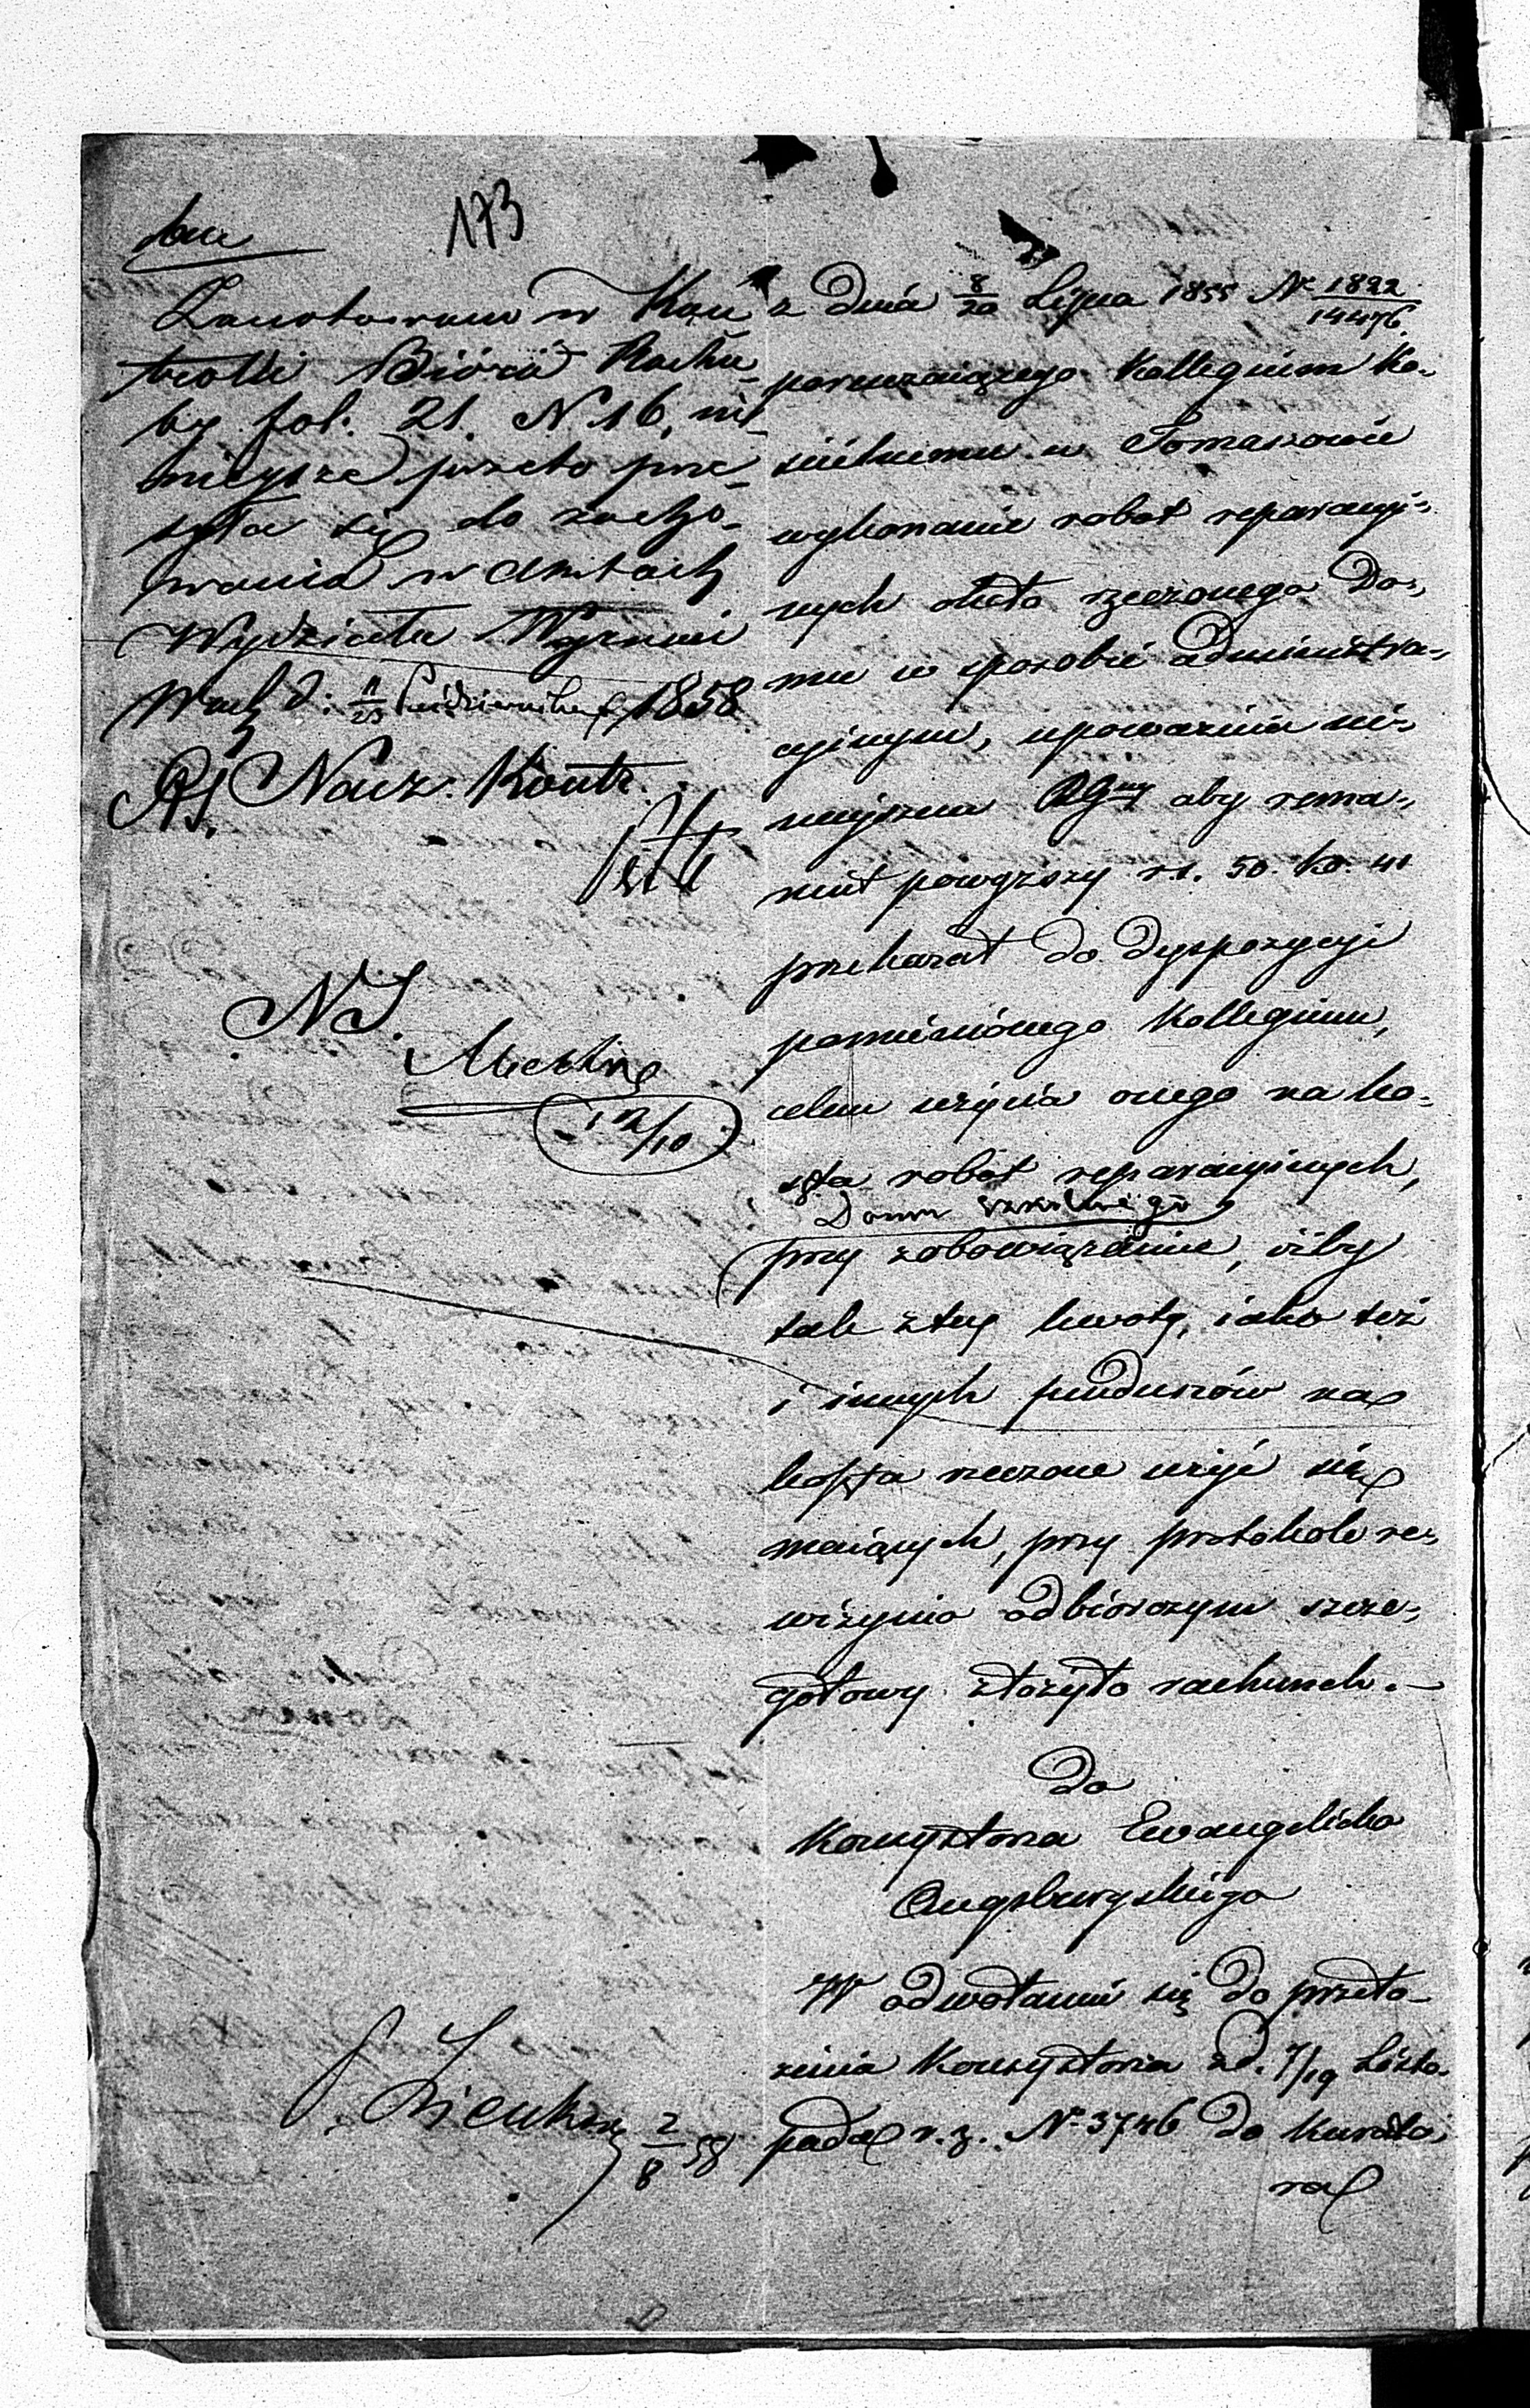 173
Zanotowano w Kon
trolli Biórá Rachu
by fol. 21. N 16, ni
nieysze przeto prze
syła się do zacho
wania w Aktach
Wydziału Wyznań
d: 11/23 Październik 1858
Nacz. Kontr.
N S.
12/10
2/8 58
z dnia 8/20 Lipca 1855 N. 1822/14476.
poruczaiącego Kollegium Ko,
ścielnemu w Tomaszowie
wykonanie robot reparacyi,
nych około rzeczonego Do,
mu w sposobie administra,
cyinym, upoważnia ni,
nieyszem RGny aby rema,
nent powyższy r.s. 50. ko. 41
przekazał do dyspozycyi
pomienionego Kollegium,
celem użycia onego na ko,
szta robót reparacyinych,
Domu szkolnego
przy zobowiązaniu, iżby
tak z tey kwoty, iako też
i innych funduszów na
koszta rzeczone użyć się
maiących, przy protokole re,
wizyino odbiorczym szcze,
gołowy złożyło rachunek.—
Do
Konsystorza Ewangelicko
Augsburgskiego
W odwołaniu się do przeło,
żenia Konsystorza z d. 7/19 Listo,
pada r. z. N. 3746 do Kurato,
ra